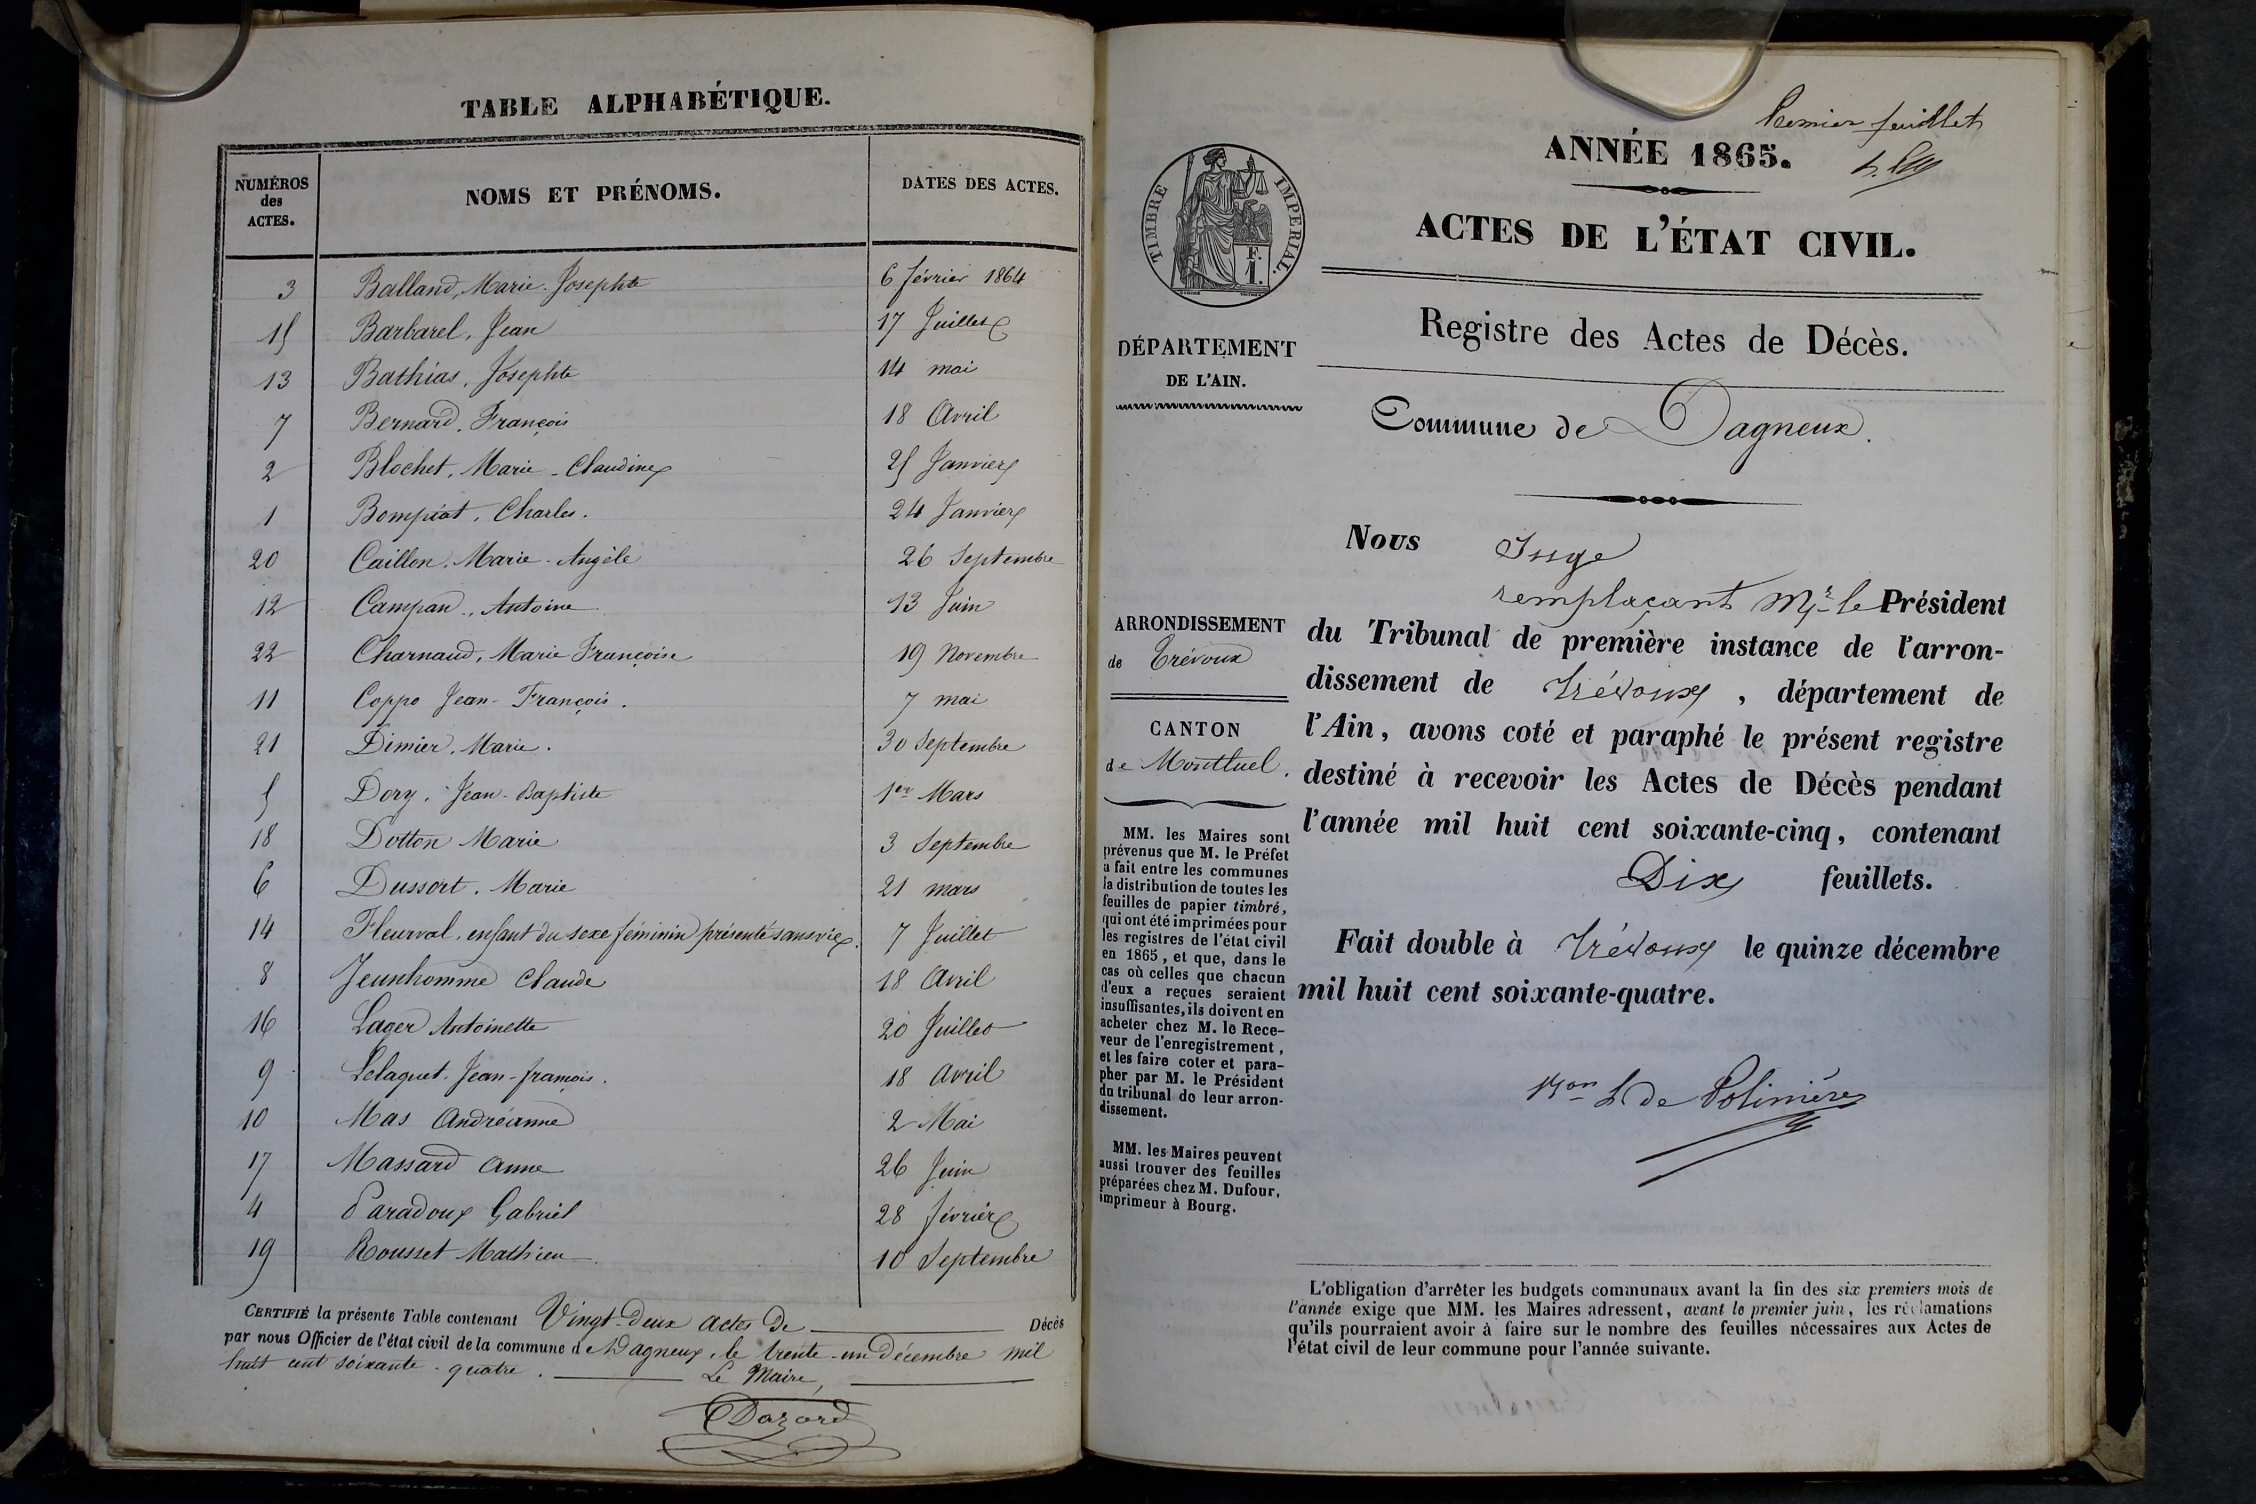 TABLE ALPHABÉTIQUE.
NUMÉROS des ACTES. NOMS ET PRÉNOMS. DATES DES ACTES.
3 Balland, Marie Josephte 6 février 1864
15 Barbarel, Jean 17 Juillet
13 Bathias, Josephte 14 mai
7 Bernard, François 18 Avril
2 Blochet, Marie-Claudine 25 Janvier
1 Bompiat, Charles. 24 Janvier
20 Caillon, Marie-Angèle 26 Septembre
12 Campan, Antoine 13 Juin
22 Charnaud, Marie Françoise 19 Novembre
11 Coppo Jean-François. 7 mai
21 Dimier, Marie. 30 Septembre
5 Dory, Jean-Baptiste 1er Mars
18 Dotton Marie 3 Septembre
6 Dussort, Marie 21 mars
14 Fleurval, enfant du sexe féminin présenté sans vie. 7 Juillet
8 Jeunhomme Claude 18 Avril
16 Lager Antoinette 20 Juillet
9 Lelaquet, Jean-françois. 18 Avril
10 Mas Andréanne 2 Mai
17 Massard Anne 26 Juin
4 Paradoux Gabriel 28 février
19 Rousset Mathieu 10 Septembre
CERTIFIÉ la présente Table contenant Vingt-Deux actes De Décès
par nous Officier de l'état civil de la commune de Dagneux, le trente-un Décembre mil
huit cent soixante-quatre. Le Maire,
Dazord
Premier feuillet
ANNÉE 1865.
ACTES DE L'ÉTAT CIVIL.
TIMBRE IMPERIAL.
F.
1.
Registre des Actes de Décès.
DÉPARTEMENT
DE L'AIN.
Commune de Dagneux.
Nous Juge
remplaçant Mr le Président
du Tribunal de première instance de l'arron-
dissement de Trévoux, département de
l'Ain, avons coté et paraphé le présent registre
destiné à recevoir les Actes de Décès pendant
l'année mil huit cent soixante-cinq, contenant
Dix feuillets.
Fait double à Trévoux le quinze décembre
mil huit cent soixante-quatre.
de Polinière
ARRONDISSEMENT
de Trévoux
CANTON
de Montluel.
MM. les Maires sont
prévenus que M. le Préfet
a fait entre les communes
la distribution de toutes les
feuilles de papier timbré,
qui ont été imprimées pour
les registres de l'état civil
en 1865, et que, dans le
cas où celles que chacun
d'eux a reçues seraient
insuffisantes, ils doivent en
acheter chez M. le Rece-
veur de l'enregistrement,
et les faire coter et para-
pher par M. le Président
du tribunal de leur arron-
dissement.
MM. les Maires peuvent
aussi trouver des feuilles
préparées chez M. Dufour,
imprimeur à Bourg.
L'obligation d'arrêter les budgets communaux avant la fin des six premiers mois de
l'année exige que MM. les Maires adressent, avant le premier juin, les réclamations
qu'ils pourraient avoir à faire sur le nombre des feuilles nécessaires aux Actes de
l'état civil de leur commune pour l'année suivante.